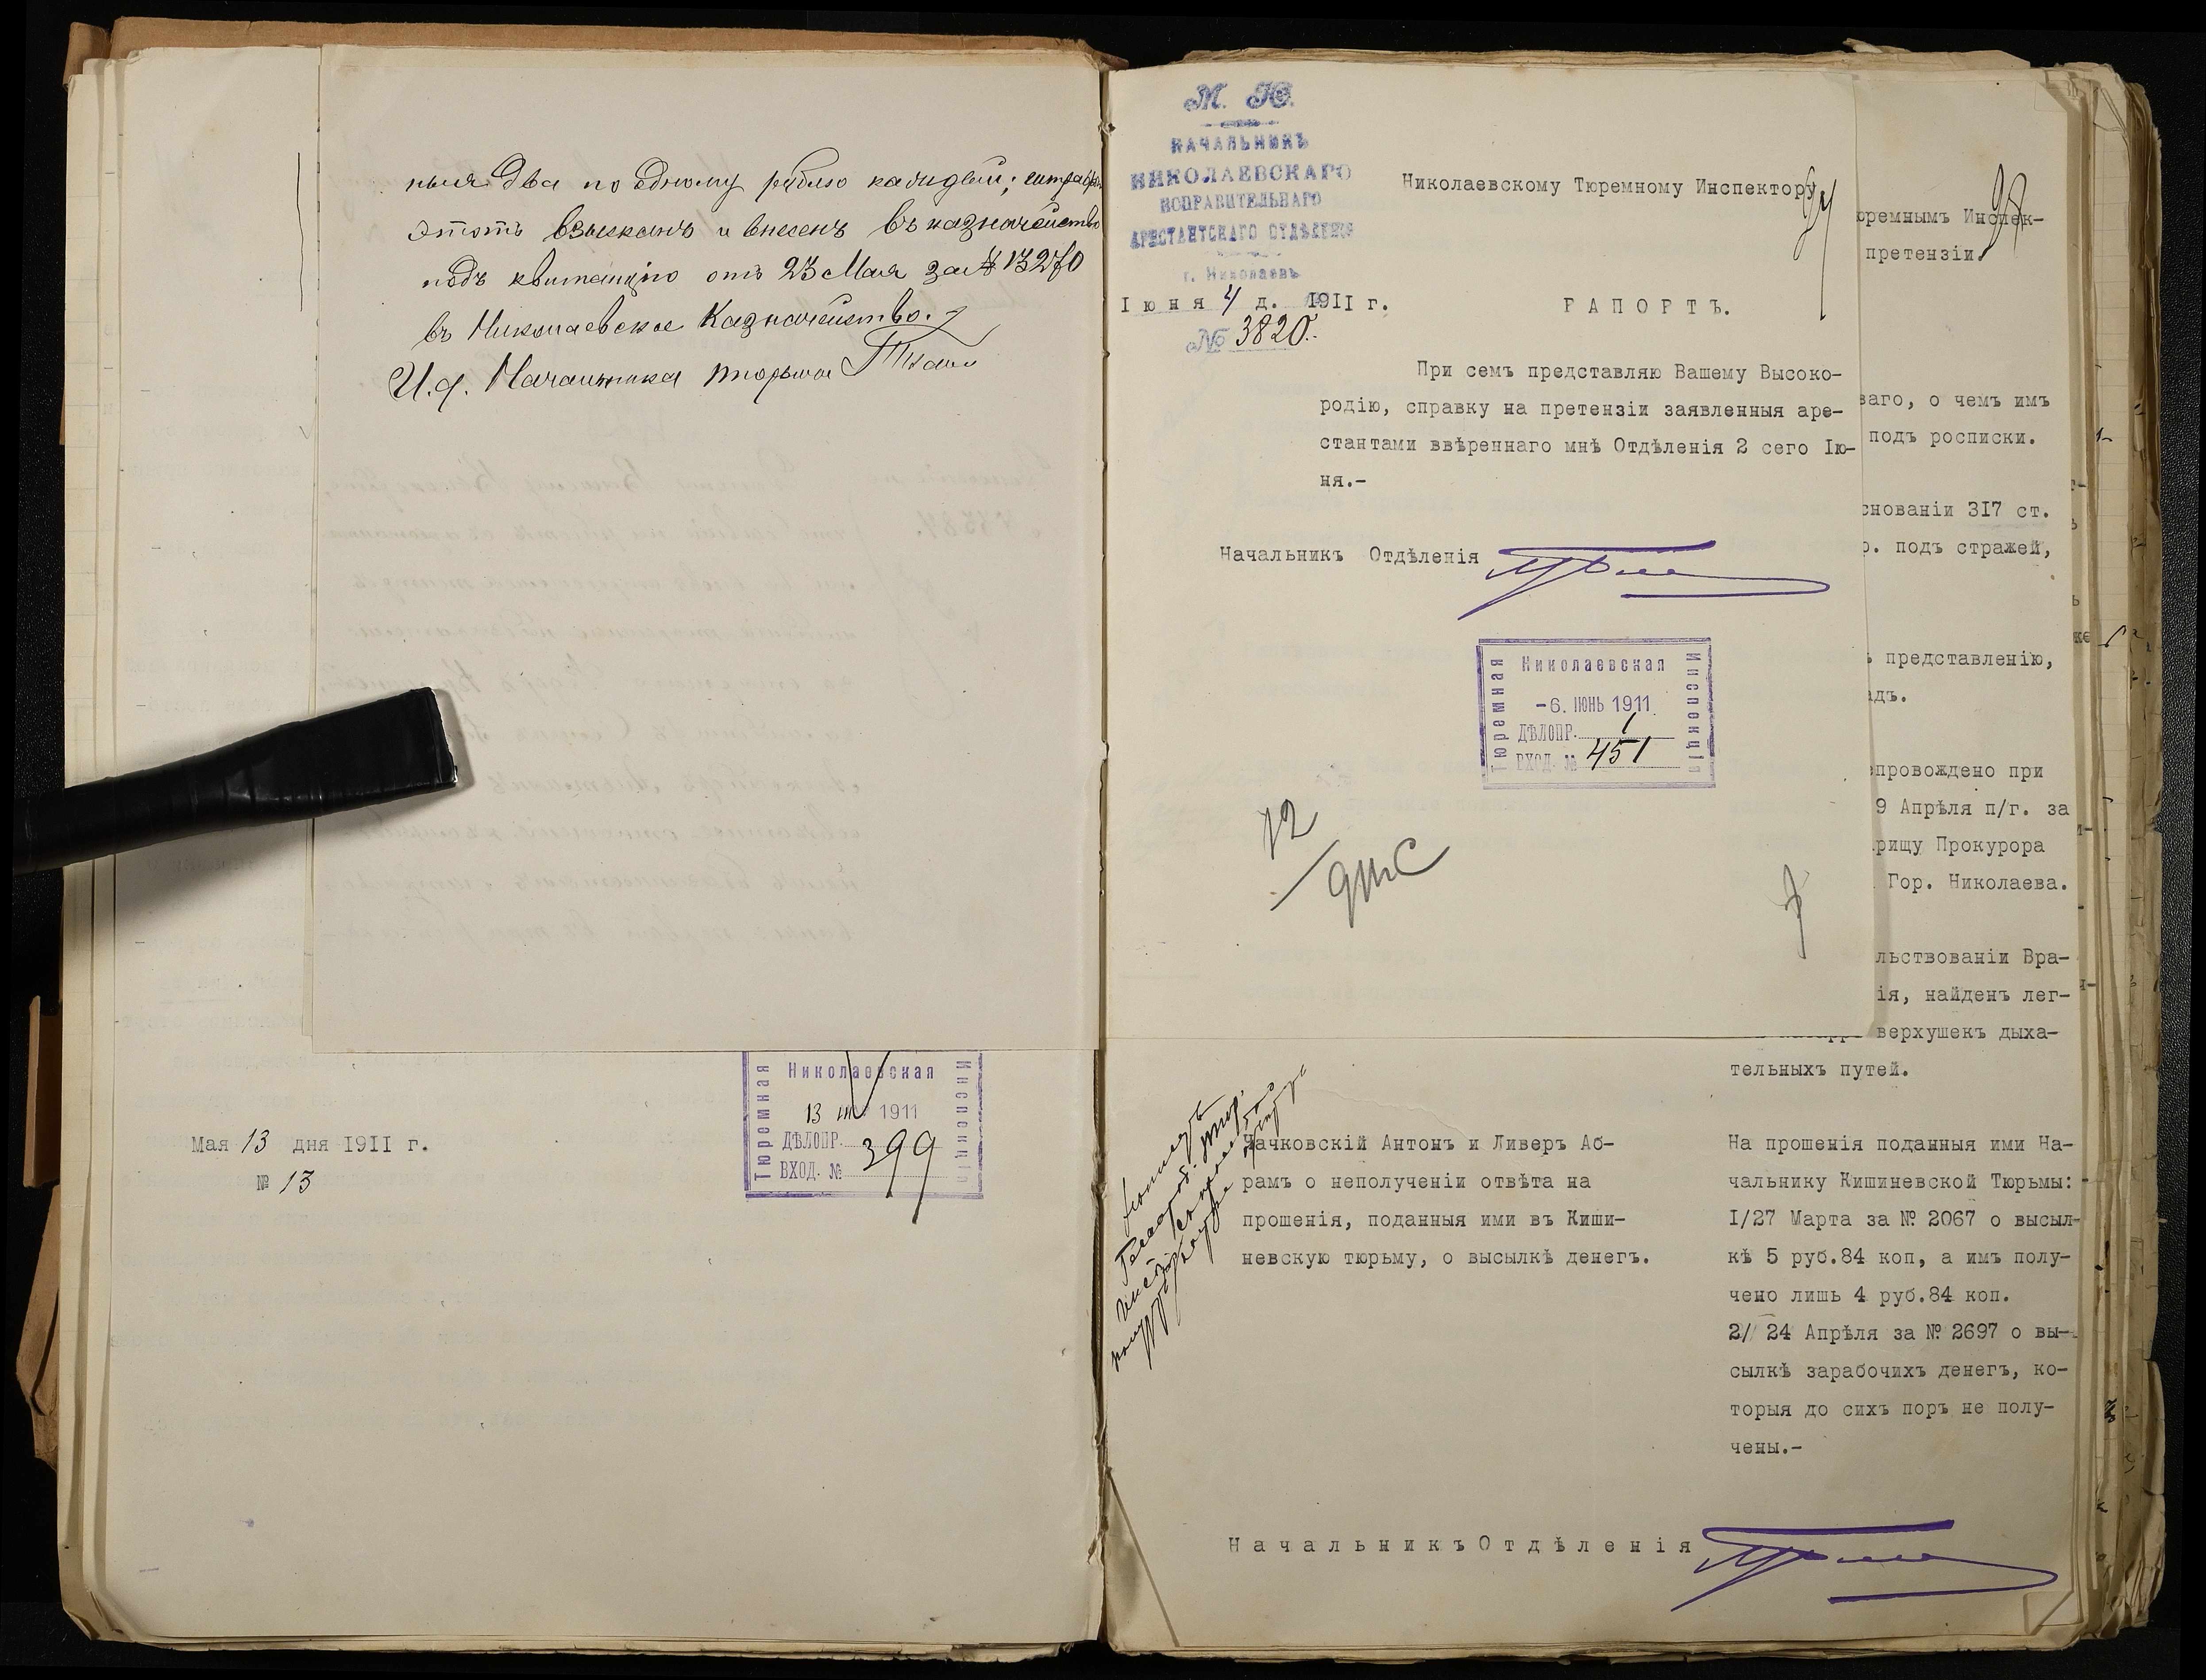 ныя два по одному рублю каждый; штрафъ
этотъ взысканъ и внесенъ въ казначейство
подъ квитанцію отъ 23 Мая за № 13270
въ Николаевское Казначейство.
И.д. Начальника тюрьмы
Николаевская
Тюремная
Инспекція
13 1911
ДѢЛОПР.
ВХОД. № 399
Мая 13 дня 1911 г.
№ 13
М. Ю.
НАЧАЛЬНИКЪ
НИКОЛАЕВСКАГО
ИСПРАВИТЕЛЬНАГО
АРЕСТАНТСКАГО ОТДѢЛЕНІЯ
г. Николаевъ
Іюня 4 д. 1911 г.
№ 3820.
Николаевскому Тюремному Инспектору
РАПОРТЪ.
При семъ представляю Вашему Высоко-
родію, справку на претензіи заявленныя аре-
стантами ввѣреннаго мнѣ Отдѣленія 2 сего Ію-
ня.-
Начальникъ Отдѣленія
Николаевская
Тюремная
Инспекція
-6. ІЮНЬ 1911
ДѢЛОПР. 1
ВХОД. № 451
юремнымъ Инспек-
претензіи
ваго, о чемъ имъ
подъ росписки.
снованіи 317 ст.
р. подъ стражей,
ъ представленію,
адъ.
епровождено при
9 Апрѣля п/г. за
рищу Прокурора
Гор. Николаева.
льствованіи Вра-
ія, найденъ лег-
верхушекъ дыха-
тельныхъ путей.
Начковскій Антонъ и Ливеръ Аб-
рамъ о неполученіи отвѣта на
прошенія, поданныя ими въ Киши-
невскую тюрьму, о высылкѣ денегъ.
На прошенія поданныя ими На-
чальнику Кишиневской Тюрьмы:
I/27 Марта за № 2067 о высыл-
кѣ 5 руб.84 коп, а имъ полу-
чено лишь 4 руб.84 коп.
2/ 24 Апрѣля за № 2697 о вы-
сылкѣ зарабочихъ денегъ, ко-
торыя до сихъ поръ не полу-
чены.-
Начальникъ Отдѣленія